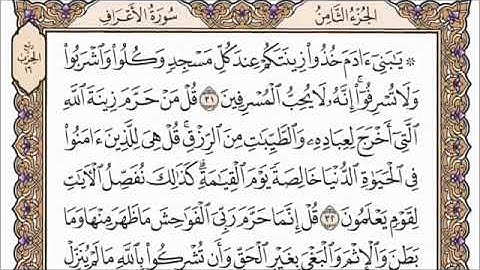 الجزء الثامن
سورة الأعراف
ربع
الحزب
١٦
۞ يَٰبَنِىٓ ءَادَمَ خُذُواْ زِينَتَكُمْ عِندَ كُلِّ مَسْجِدٍ وَكُلُواْ وَٱشْرَبُواْ
وَلَا تُسْرِفُوٓاْۚ إِنَّهُۥ لَا يُحِبُّ ٱلْمُسْرِفِينَ ٣١ قُلْ مَنْ حَرَّمَ زِينَةَ ٱللَّهِ
ٱلَّتِىٓ أَخْرَجَ لِعِبَادِهِۦ وَٱلطَّيِّبَٰتِ مِنَ ٱلرِّزْقِۚ قُلْ هِىَ لِلَّذِينَ ءَامَنُواْ
فِى ٱلْحَيَوٰةِ ٱلدُّنْيَا خَالِصَةً يَوْمَ ٱلْقِيَٰمَةِۗ كَذَٰلِكَ نُفَصِّلُ ٱلْأٓيَٰتِ
لِقَوْمٍ يَعْلَمُونَ ٣٢ قُلْ إِنَّمَا حَرَّمَ رَبِّىَ ٱلْفَوَٰحِشَ مَا ظَهَرَ مِنْهَا وَمَا
بَطَنَ وَٱلْإِثْمَ وَٱلْبَغْىَ بِغَيْرِ ٱلْحَقِّ وَأَن تُشْرِكُواْ بِٱللَّهِ مَا لَمْ يُنَزِّلْ